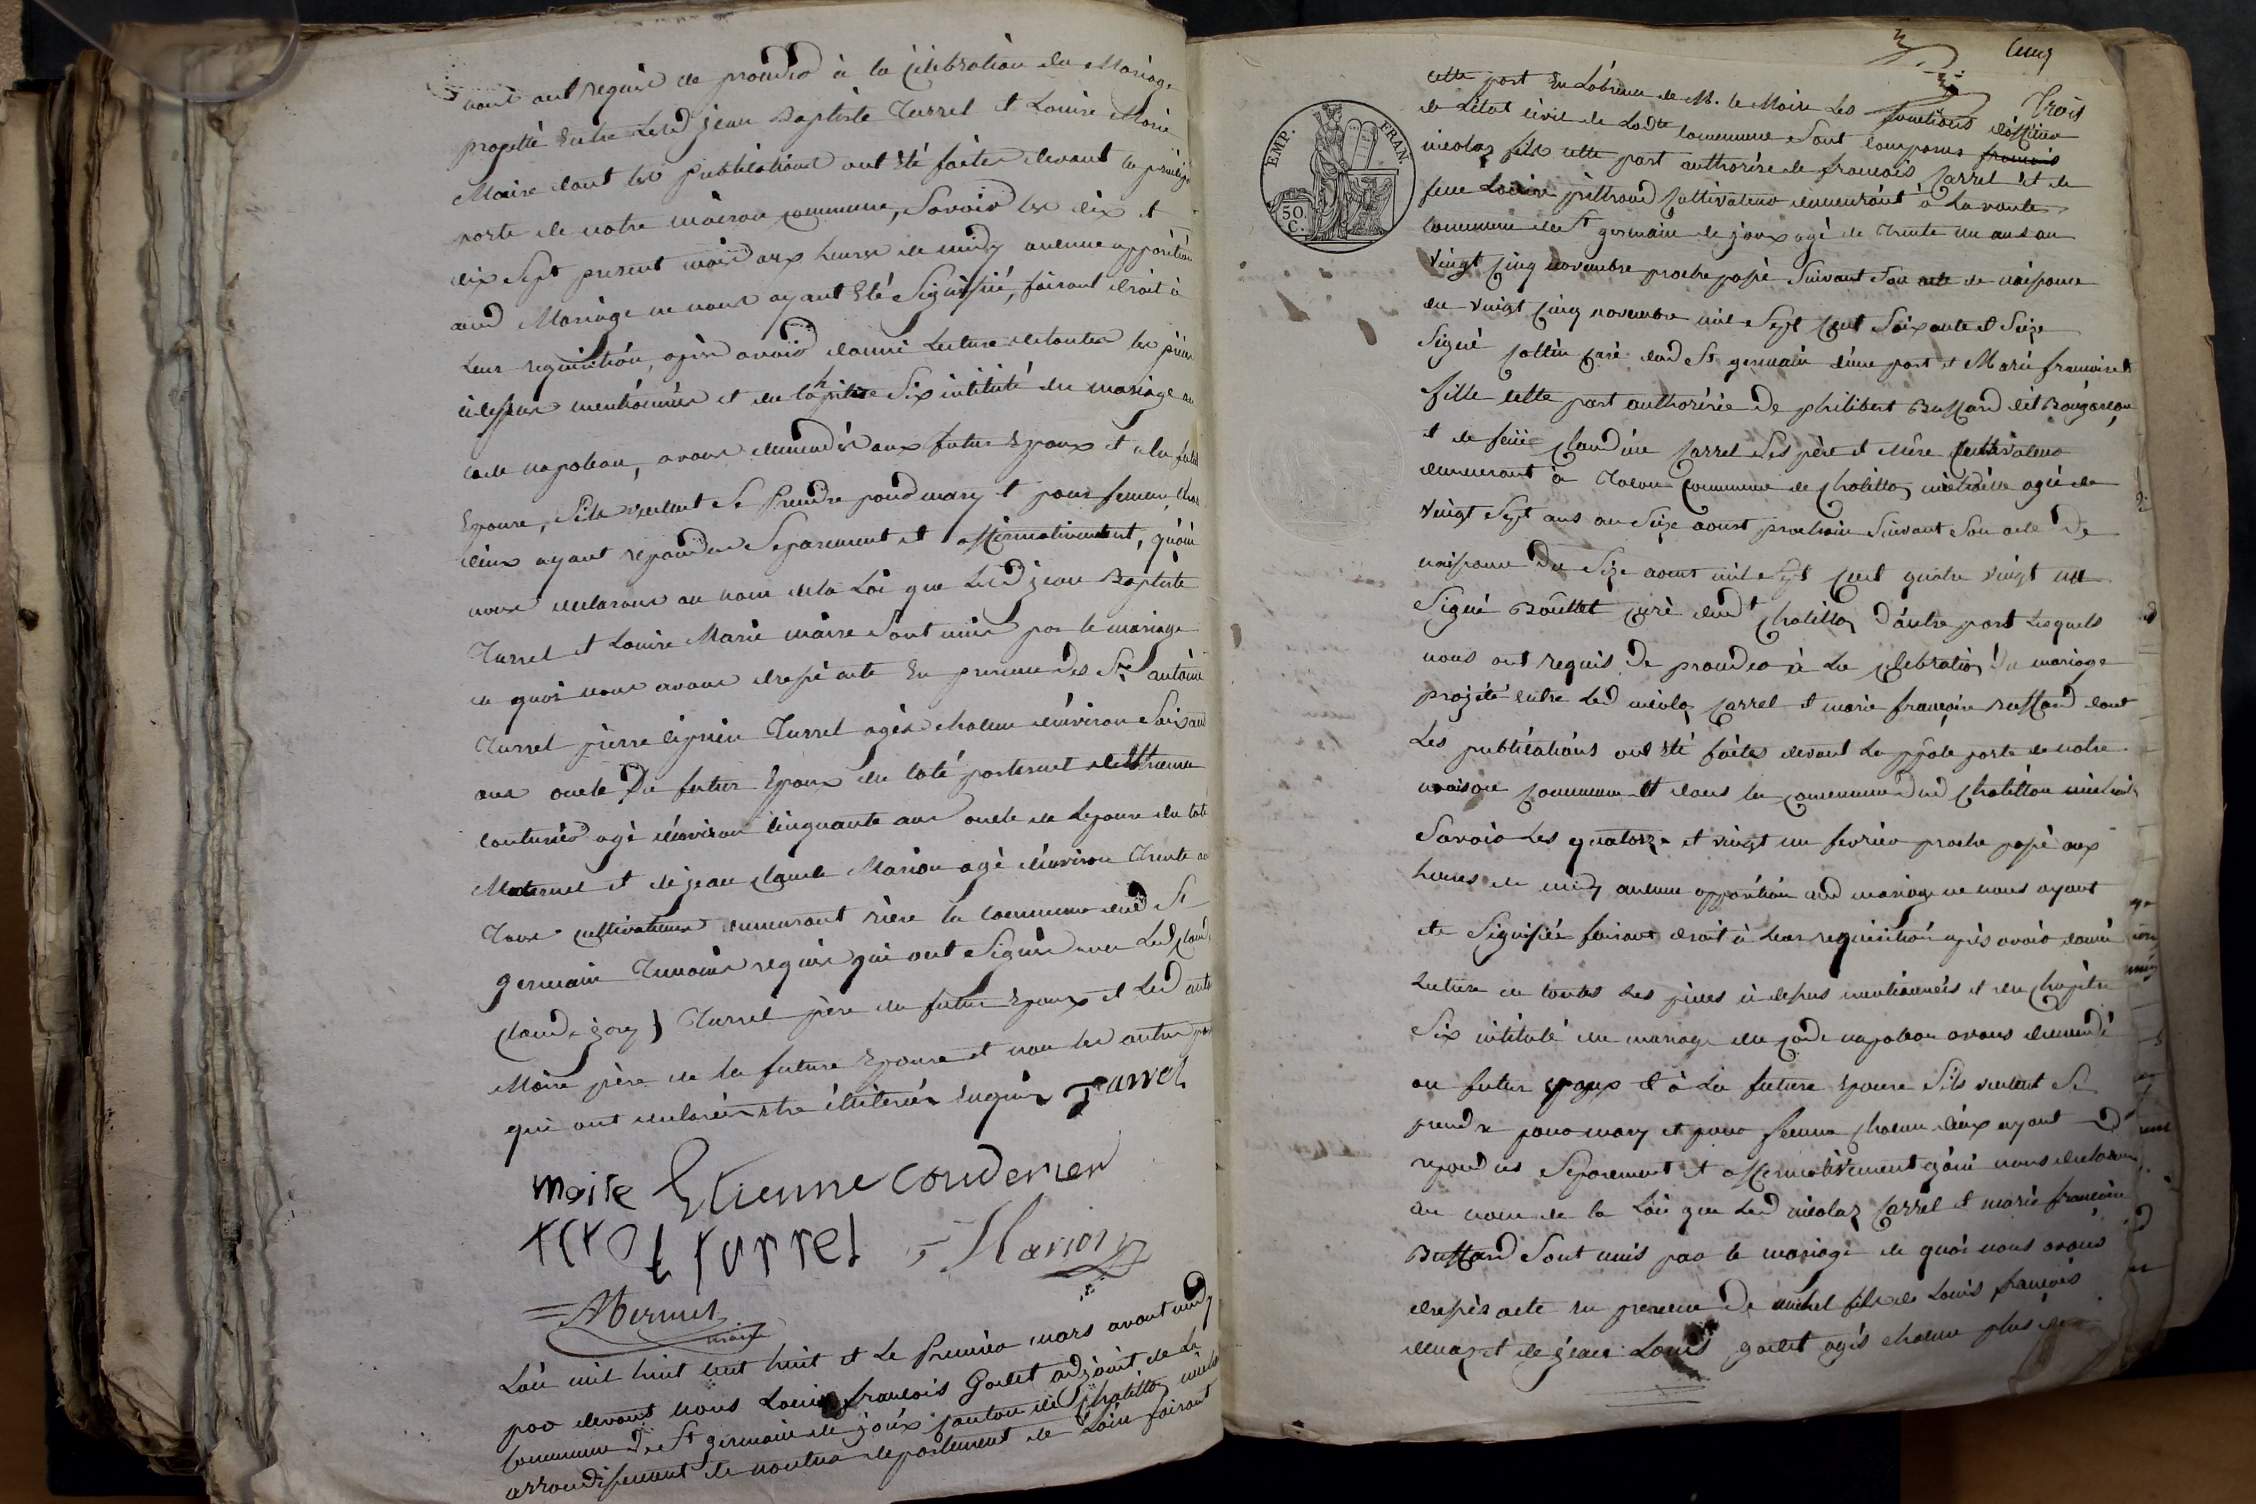 nous ont requis de proceder à la célébration du Mariage
projetté entre Led jean Baptiste Turrel et Louise Marie
Maire dont les publications ont été faites devant la principale
porte de notre maison commune, Savoir les dix et
dix Sept present mois aux heures de midy aucune opposition
aud Mariage ne nous ayant été Signifié, faisant droit à
Leur requisition, après avoir donné Lecture de toutes les pièces
ci dessus mentionnées et du chapitre Six intitulé du mariage du
code napoleon, avons demandés aux futur Epoux et a la future
Epouse, Sils veulent Se Prendre pour mary et pour femme, chacun
deux ayant repondu Separement et affirmativement, qu'oui
nous declarons au nom de la Loi que Led jean Baptiste
Turrel et Louise Marie maire Sont unis par le mariage
de quoi nous avons dressé acte En presence des Srs antoine
Turrel pierre Turrel agés chacun d'environ Soixante
ans oncle Du futur Epoux du coté paternel d'Etienne
couturier agé d'environ Cinquante ans oncle de Lepouse du coté
Maternel et de jean claude Marion agé d'environ Trente ans
Tous cultivateurs demeurant rière la commune dud St
germain Temoins requis qui ont Signés avec Led claude
claude Turrel père du futur Epoux et Led
Maire père de la future Epouse et non les autres parties
qui ont declarés être illiterés Enquis Turrel
maire Etienne couderier
turrel Marion
maire
L'an mil huit cent huit et Le Premier mars avant midy
par devant nous Louis françois Godet adjoint de La
Commune De St germain de joux canton de Chatillon michaille
arrondissement de nantua departement de Lain faisant
cinq
Trois
EMP. FRAN.
50. C.
cette part En Labsence de M. le Maire Les fonctions dofficier
de Létat civil de Ladte commune Sont comparus francois
nicolas fils cette part authorisé de francois Carrel et de
feue Louise cultivateur demeurant à La voute
commune de St germain de joux agé de Trente un ans au
vingt Cinq novembre proche passé Suivant Son acte de naissance
du vingt Cinq novembre mil Sept Cent Soixante et Seize
Signé Curé dud St germain d'une part et Marie francoise
fille cette part authorisée de philibert Buffard dit
et de feüe Claudine Carrel Ses père et mère Cultivateur
demeurant à Commune de Chatillon michaille agée de
vingt Sept ans au Seize aoust prochain Suivant Son acte De
naissance Du Seize aout mil Sept Cent quatre vingt un
Signé Curé dudt Chatillon D'autre part Lesquels
nous ont requis De proceder à La Celebration Du mariage
projété entre Led nicolas Carrel et marie françoise Buffard dont
Les publications ont été faites devant La pple porte de notre
maison Commune et dans la Commune Dud Chatillon michaille
Savoir Les quatorze et vingt un fevrier proche passé aux
heures de midy aucune opposition aud mariage ne nous ayant
ete Signifiée faisant droit à Leur requisition après avoir donné
Lecture de toutes Les pieces ci dessus mentionnées et du Chapitre
Six intitulé du mariage du Code napoleon avons demandé
au futur epoux et à La future Epouse Sils veulent Se
prendre pour mary et pour femme Chacun deux ayant
repondus Separement et affirmativement qu'oui nous declarons
au nom de la Loi que Led nicolas Carrel et marie françoise
Buffard Sont unis par le mariage de quoi nous avons
dressés acte En presence De michel fils de Louis françois
et de jean Louis godet agés chacun plus de